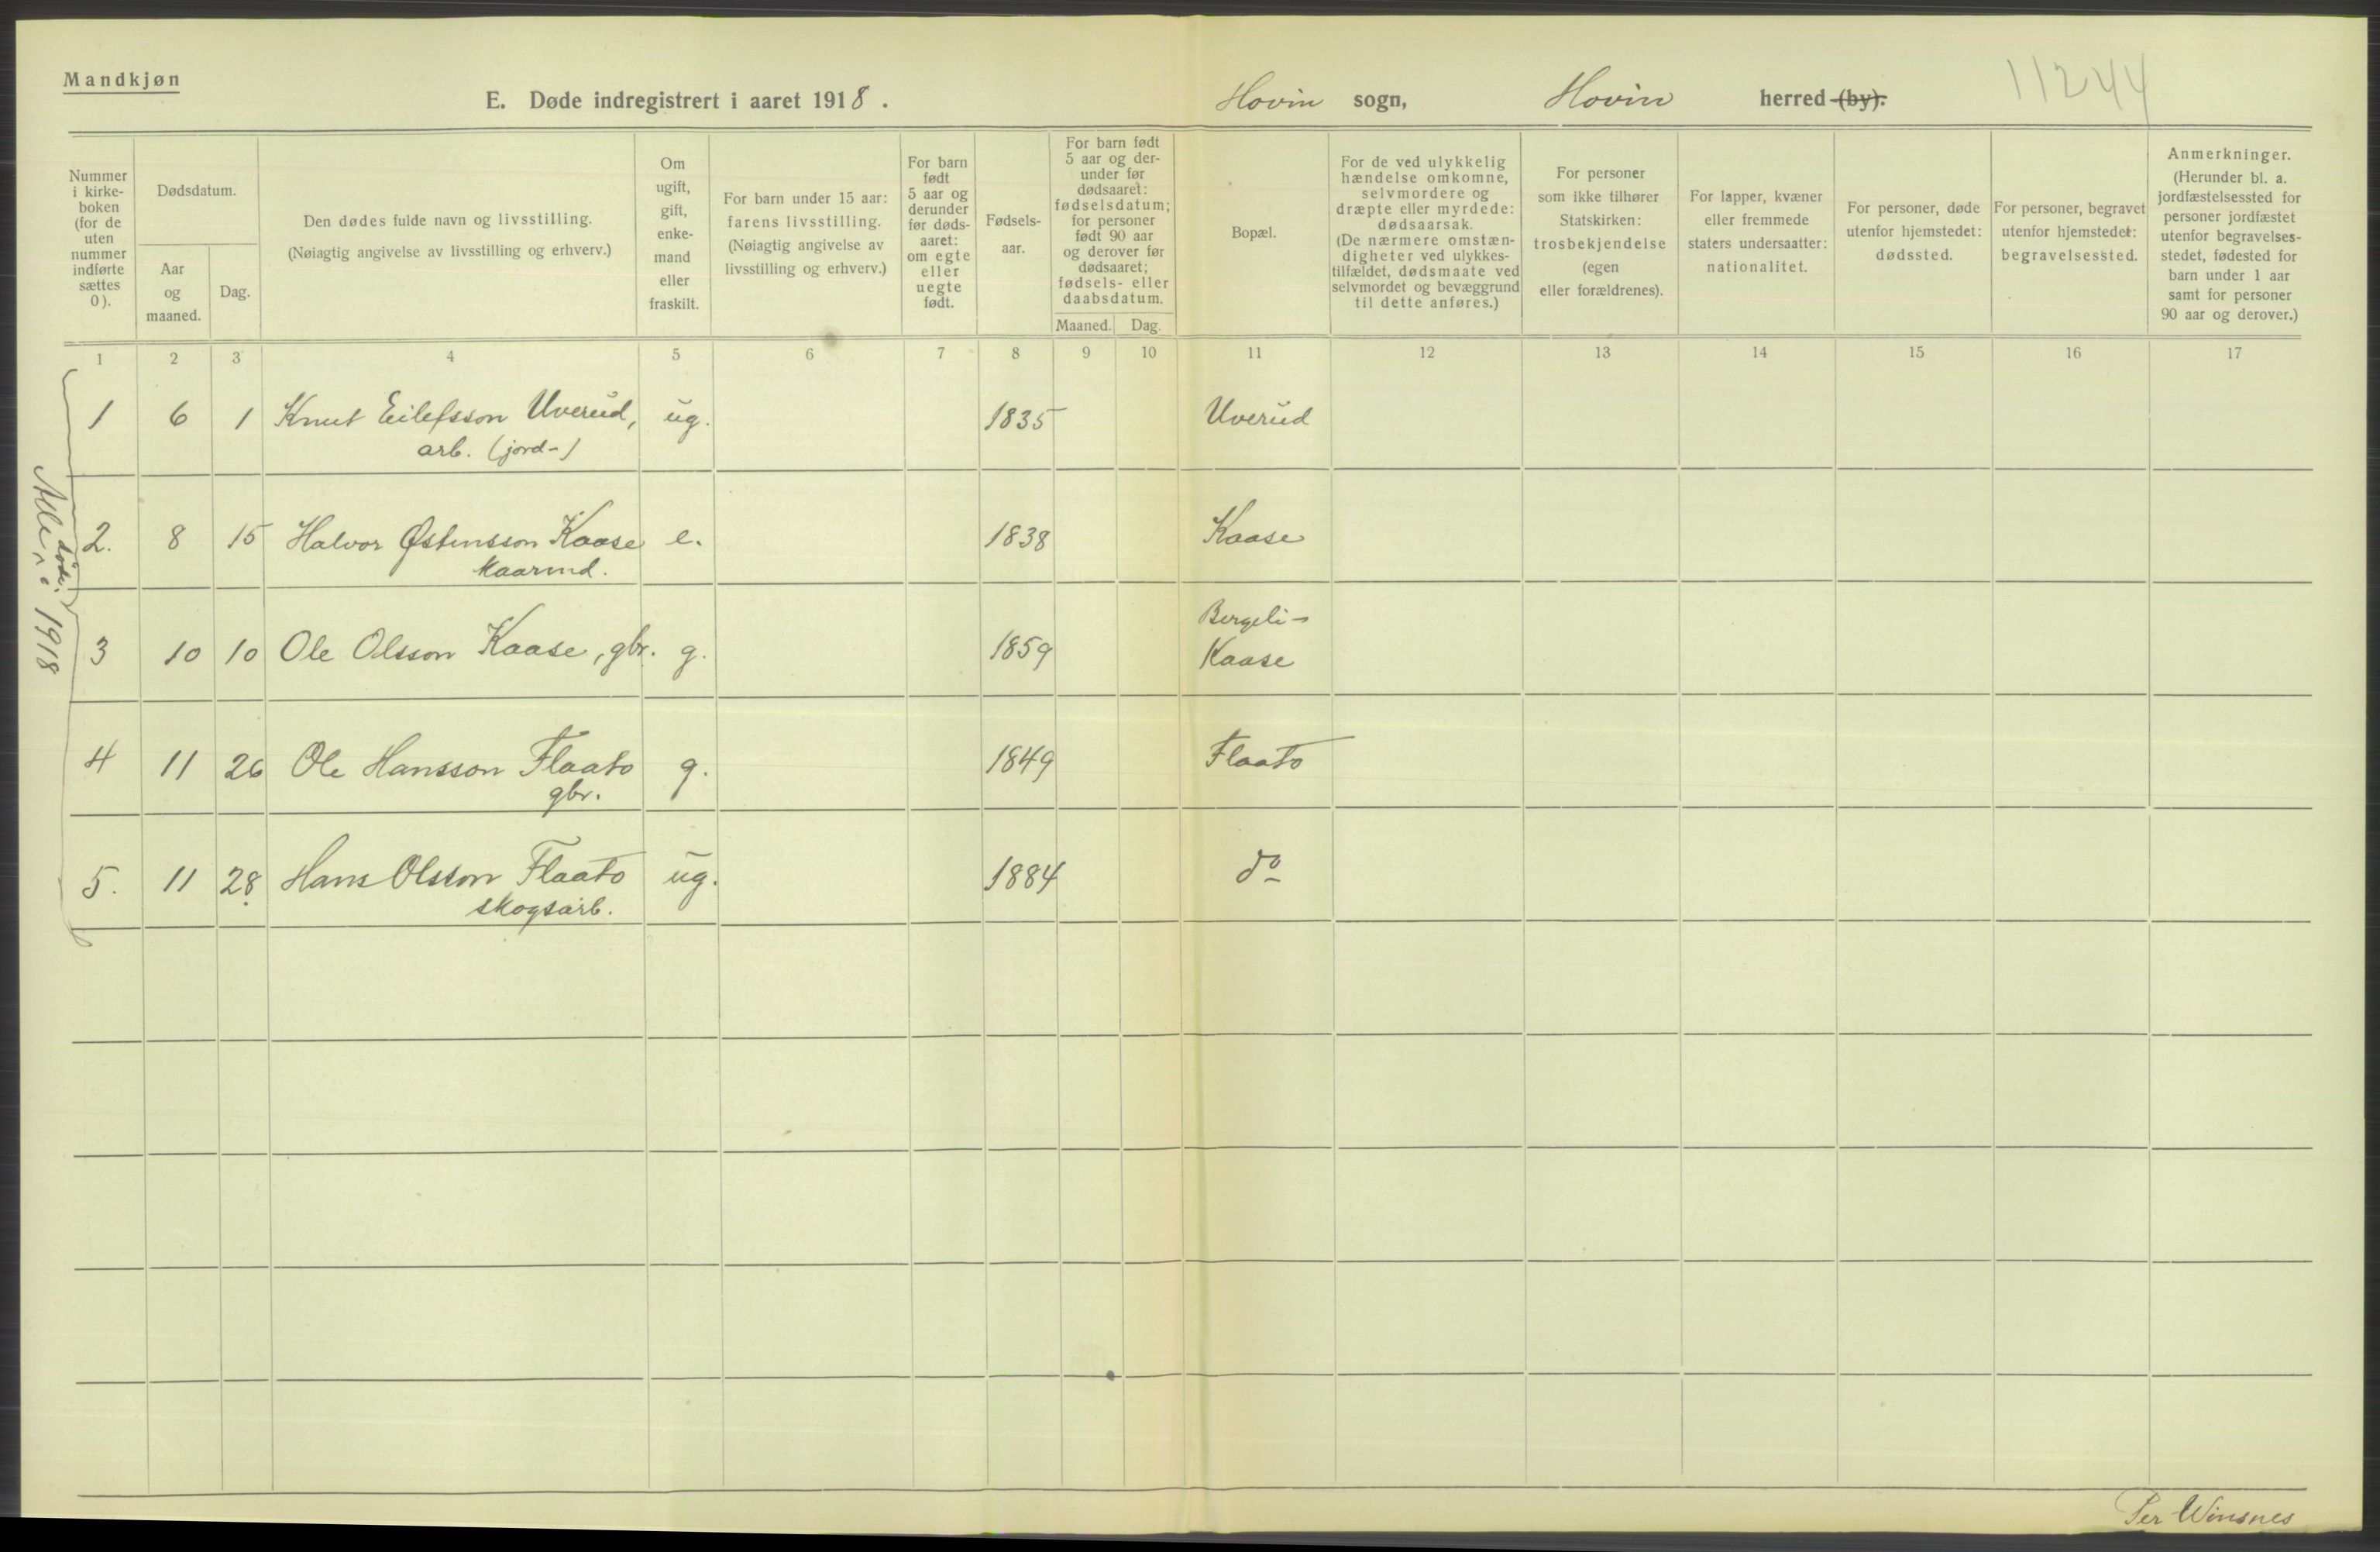 Mandkjøn
E. Døde indregistrert i aaret 1918.
Hovin sogn, Hovin herred (by).
11244
Nummer
i kirke-
boken
(for de
uten
nummer
indførte
sættes
0).
Dødsdatum.
Aar
og
maaned.
Dag.
Den dødes fulde navn og livsstilling.
(Nøiagtig angivelse av livsstilling og erhverv.)
Om
ugift,
gift,
enke-
mand
eller
fraskilt.
For barn under 15 aar:
farens livsstilling.
(Nøiagtig angivelse av
livsstilling og erhverv.)
For barn
født
5 aar og
derunder
før døds-
aaret:
om egte
eller
uegte
født.
Fødsels-
aar.
For barn født
5 aar og der-
under før
dødsaaret:
fødselsdatum;
for personer
født 90 aar
og derover før
dødsaaret;
fødsels- eller
daabsdatum.
Maaned. Dag.
Bopæl.
For de ved ulykkelig
hændelse omkomne,
selvmordere og
dræpte eller myrdede:
dødsaarsak.
(De nærmere omstæn-
digheter ved ulykkes-
tilfældet, dødsmaate ved
selvmordet og bevæggrund
til dette anføres.)
For personer
som ikke tilhører
Statskirken:
trosbekjendelse
(egen
eller forældrenes).
For lapper, kvæner
eller fremmede
staters undersaatter:
nationalitet.
For personer, døde
utenfor hjemstedet:
dødssted.
For personer, begravet
utenfor hjemstedet:
begravelsessted.
Anmerkninger.
(Herunder bl. a.
jordfæstelsessted for
personer jordfæstet
utenfor begravelses-
stedet, fødested for
barn under 1 aar
samt for personer
90 aar og derover.)
1 2 3 4 5 6 7 8 9 10 11 12 13 14 15 16 17
1 6 1 Knut Eilefsson Uverud, ug. 1835 Uverud
arb. (jord-)
2. 8 15 Halvor Østensson Kaase e. 1838 Kaase
kaarmd.
3 10 10 Ole Olsson Kaase, gbr. g. 1859 Bergeli-
Kaase
4 11 26 Ole Hansson Flaato g. 1849 Flaato
gbr.
5. 11 28 Hans Olsson Flaato ug. 1884 do
skogsarb.
Alle døde i 1918
Per Winsnes